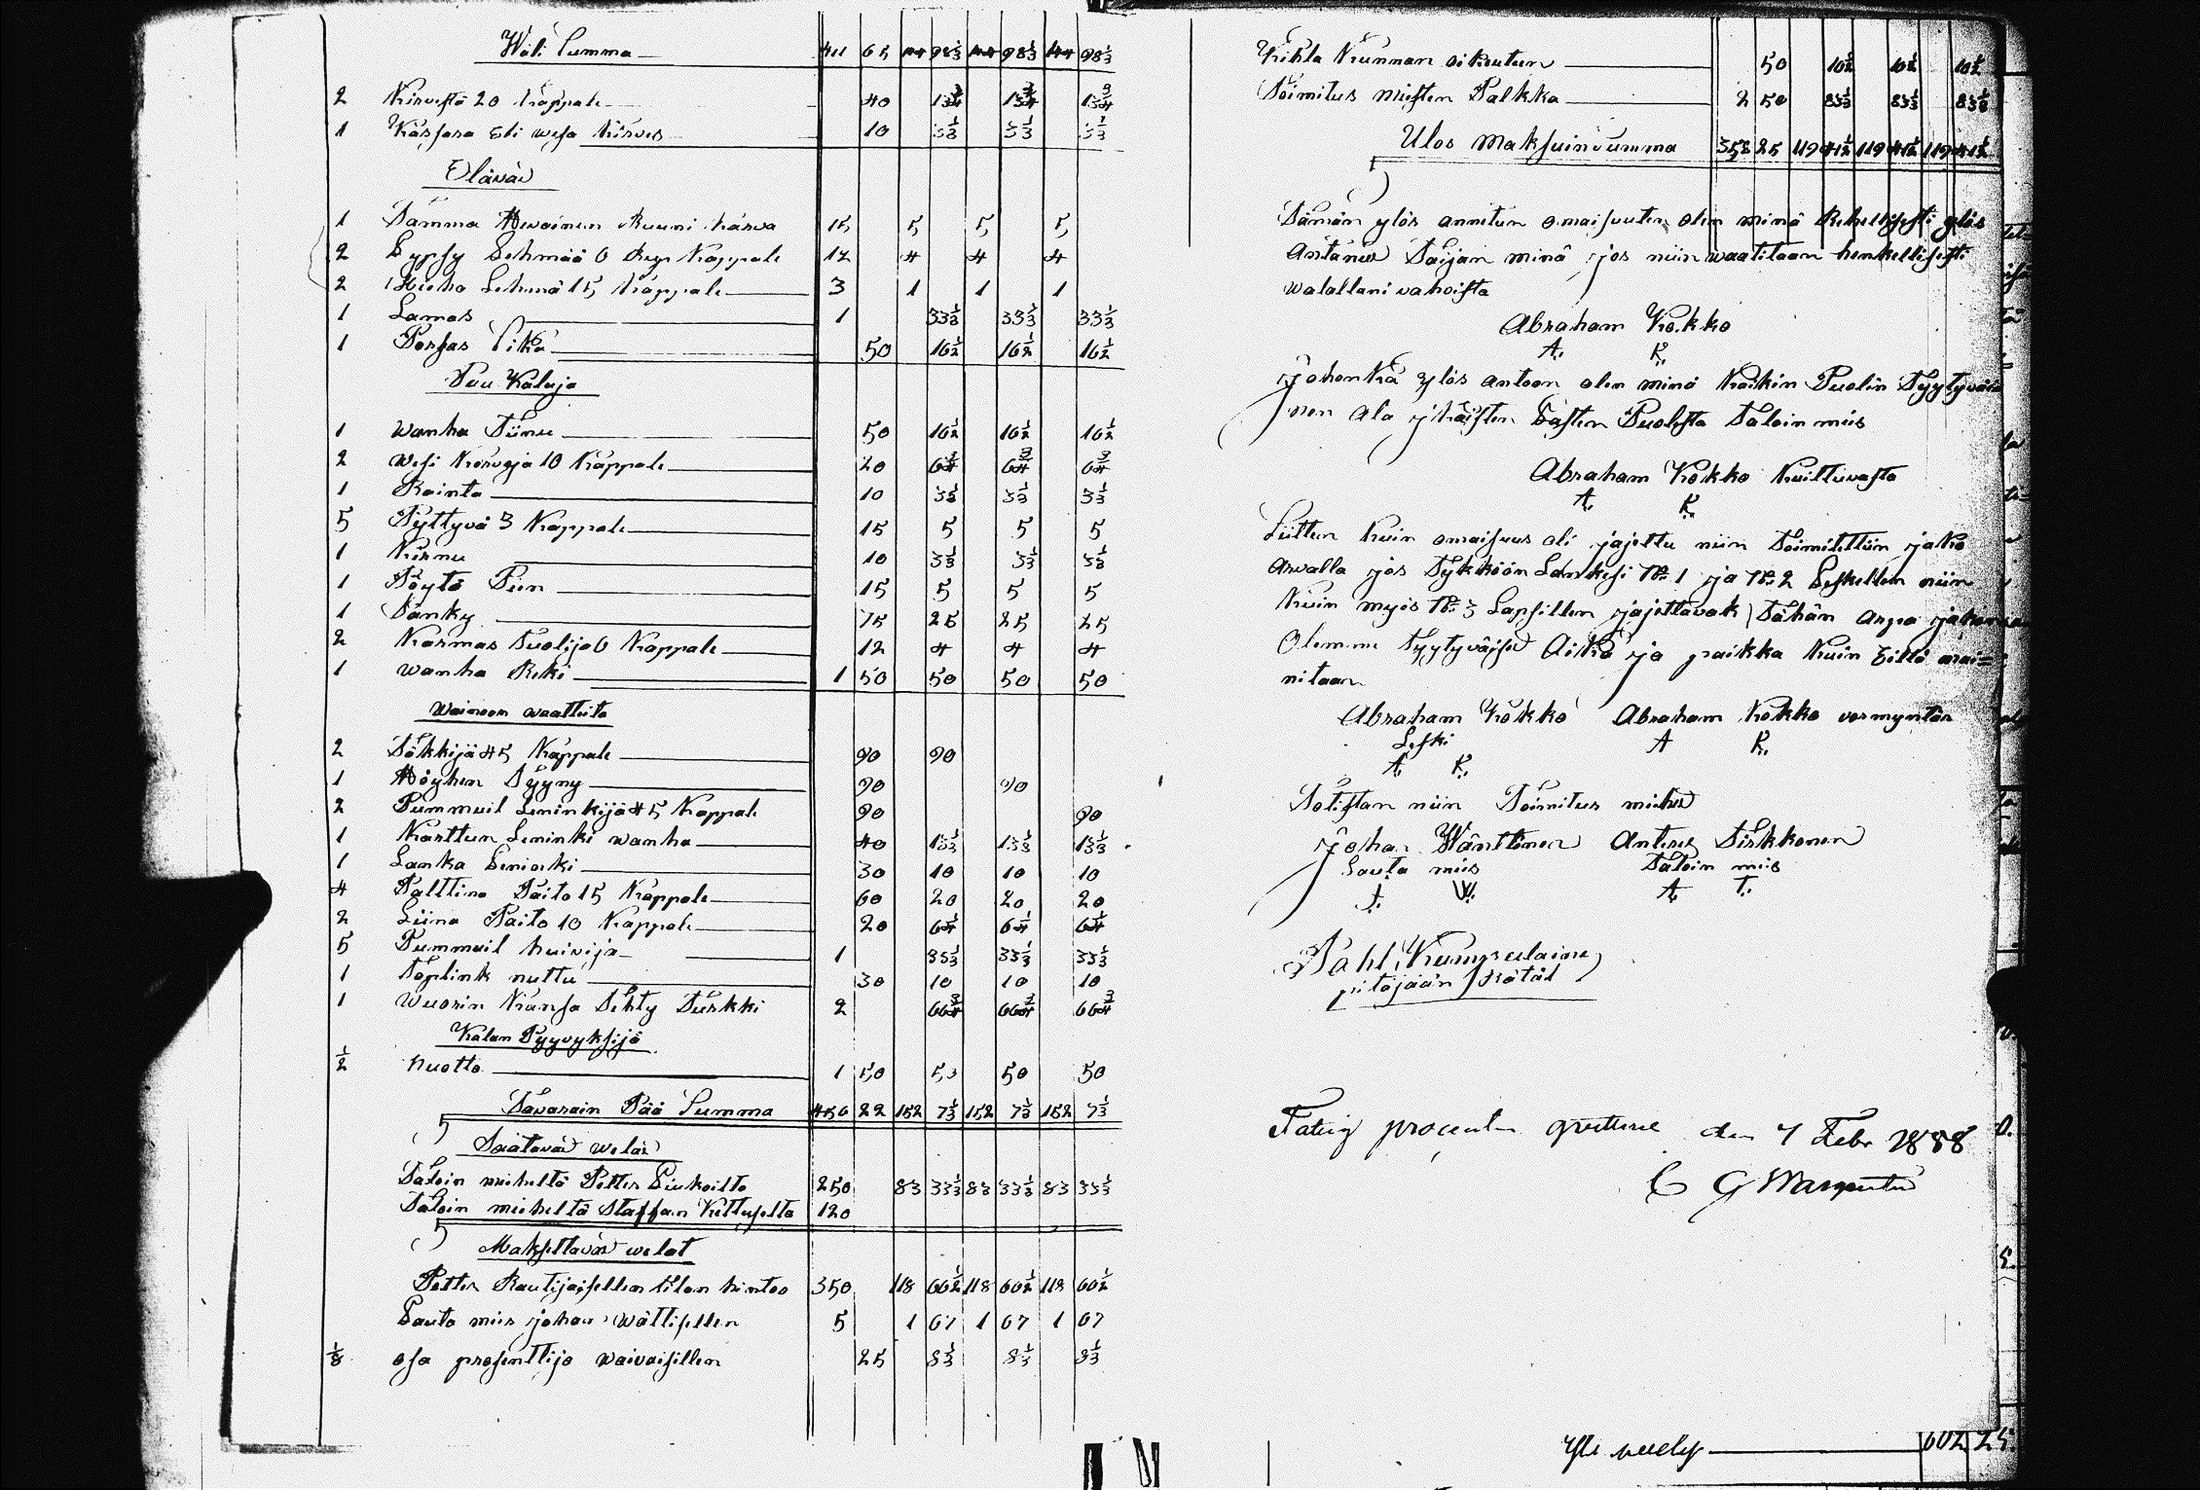 Wäli Summa 411 65 144 98 1/3 144 98 1/3 144 98 1/3
2 Kirvestä 20 kappale 40 13 3/4 13 3/4 13 3/4
1 Kässara Eli wesa kirves 10 3 1/3 3 1/3 3 1/3
Eläväd
1 Tamma Hevoinen Ruuni karva 15 5 5 5
2 Lypsy Lehmää 6 Kappale 12 4 4 4
2 Hieho Lehmä 1 5 kappale 3 1 1 1
1 Lamas 1 33 1/3 33 1/3 33 1/3
1 Porsas Sika 50 16 1/2 16 1/2 16 1/2
Puu Kaluja
1 Wanha Tiinu 50 16 1/2 16 1/2 16 1/2
2 Wesi Korvoja 10 Kappale 20 6 3/4 6 3/4 6 3/4
1 Rainta 10 3 1/3 3 1/3 3 1/3
5 Pyttyvä 3 Kappale 15 5 5 5
1 Kirnu 10 3 1/3 3 1/3 3 1/3
1 Pöytä Pien 15 5 5 5
1 Sänky 75 25 25 25
2 Karmas Tuolija 6 Kappale 12 4 4 4
1 Wanha Reki 1 50 50 50 50
Wainoon waatteita
2 Säkkijä 45 Kappale 90 90
1 Höyhen Tyyny 90 90
2 Pummuil Leninkijä 45 Kappale 90 90
1 Karttun Leninki wanha 40 13 1/3 13 1/3 13 1/3
1 Lanka Leninki 30 10 10 10
4 Palttina Paito 15 Kappale 60 20 20 20
2 Liina Paito 10 Kappale 20 6 1/4 6 1/4 6 1/4
5 Pummuil huivija 1 33 1/3 33 1/3 33 1/3
1 nuttu 30 10 10 10
1 Wuorin Kansa Tehty Turkki 2 66 3/4 66 3/4 66 3/4
Kalan Pyyvyksijä
1/2 Nuotta 1 50 50 50 50
Tavarain Pää Summa 456 22 152 7 1/3 152 7 1/3 152 7 1/3
Saatavad welad
Taloin mieheltä Petter 250 83 33 1/3 83 33 1/3 83 33 1/3
Taloin mieheltä Staffan 120
Maksettavad welat
Petter Rautijaisellen tilan hintoo 350 118 60 1/2 118 60 1/2 118 60 1/2
Lauta mies johan Wättisellen 5 1 67 1 67 1 67
1/8 osa prosenttijo waivaisillen 25 8 1/3 8 1/3 8 1/3
Kihla Kunnan oikeuteen 50 16 1/2 16 1/2 16 1/2
Toimitus miesten Palkka 2 50 83 1/3 83 1/3 83 1/3
Ulos Maksuin Summa 358 25 119 41 1/2 119 41 1/2 119 41 1/2
Tämän ylös annetun omaisuuten olen minä Rehellisesti ylös
Antanud Taijan minä jos niin waatitaan henkellisesti
walallani vahvista
Abraham Kokko
A. K.
johonka ylös antoon olen minä Kaikin Puolin Tyytyväi
nen ala jkäisten Lasten Puolesta Taloin mies
Abraham Kokko Kuittuvasta
A. K.
Sitten kuin omaisuus oli jajettu niin Toimitettiin jako
Arvalla jos Tykköön Lankesi No 1 ja No 2 Leskellen niin
Kuin myös No 3 Lapsillen jajettavak Tähän arpa jakoon
Olemme tyytyväised Aika ja paikka Kuin Eillä mai=
nitaan
Abraham Kokko Abraham Kokko vormyntär
Leski A K.
A. K.
Totistan niin Toimitus miehed
Johan Wänttinen Anteres Sirkkonen
Lauta mies Taloin mies
J. W. A. T.
Pahl Kumpulaine
pitäjään Räätäl
Fattig procenten qvitteras den 7 Febr 1888
C G
602 25